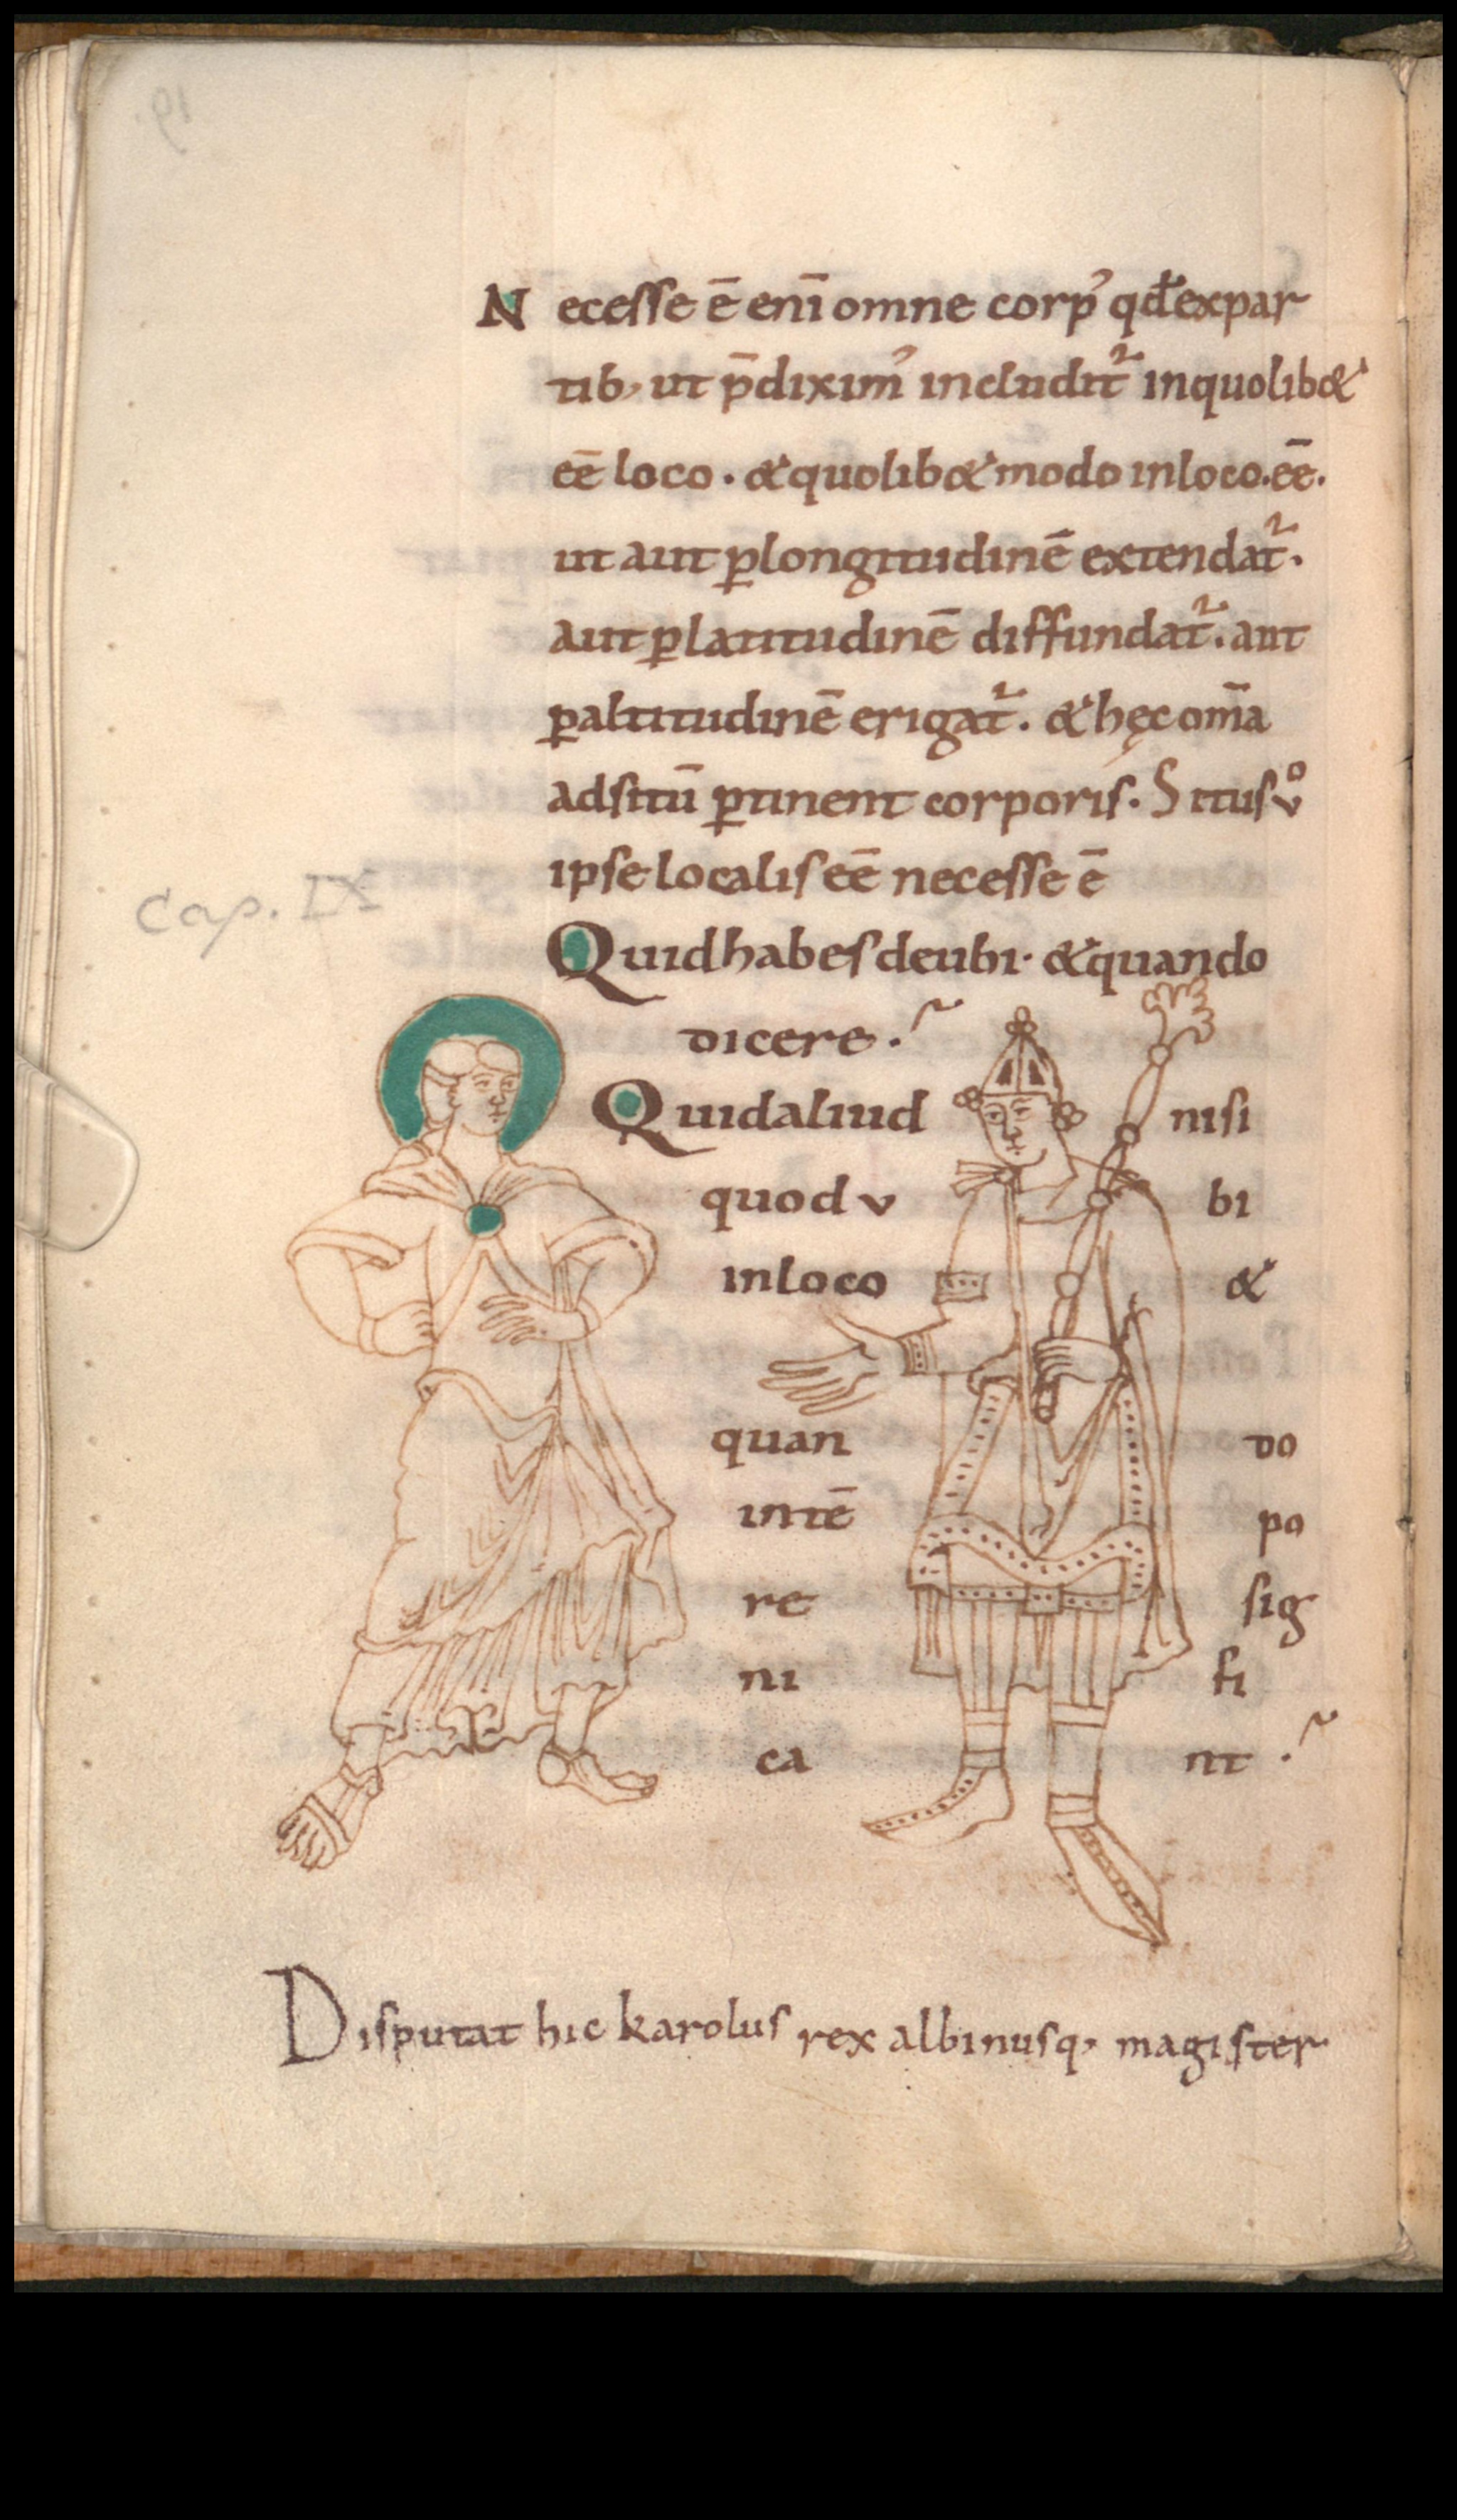 19.
N ecesse ē enī omne corp᾿ qđ expar
tib; ut p̄dixim᾿ includit᷑ inquolib&
eē loco . & quolib& modo inloco . eē .
ut aut ꝑlongitudinē extendat᷑ .
aut ꝑlatitudinē diffundat᷑ . aut
ꝑaltitudinē erigat᷑ . & hęc om̄a
adsitū ꝑtinent corporis . Situs vͦ
ipse localis eē necesse ē
Cap. IX
Quid habes de ubi · & quando
dicere .~
Quid aliud nisi
quod v bi
inloco &
quan do
intē po
re sig
ni fi
ca nt .~
Disputat hic karolus rex albinusq; magister